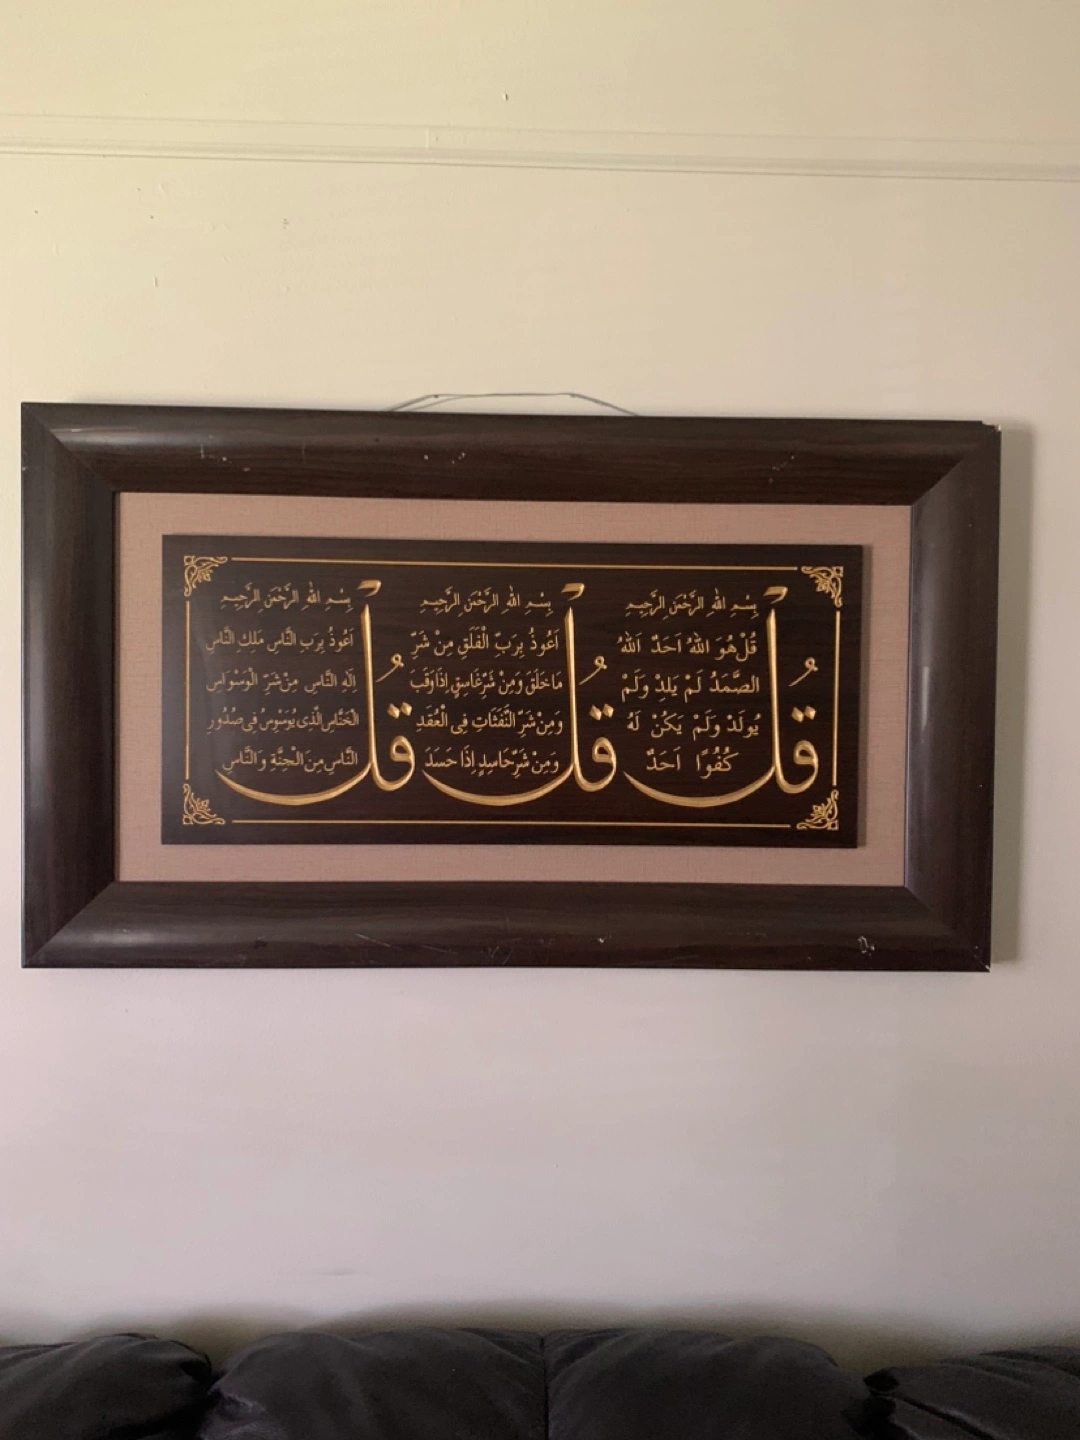 قُلْ
بِسْمِ اللهِ الرَّحْمٰنِ الرَّحِيمِ
قُلْ هُوَ اللهُ اَحَدٌ اَللهُ
الصَّمَدُ لَمْ يَلِدْ وَلَمْ
يُولَدْ وَلَمْ يَكُنْ لَهُ
كُفُوًا اَحَدٌ
قُلْ
بِسْمِ اللهِ الرَّحْمٰنِ الرَّحِيمِ
اَعُوذُ بِرَبِّ الْفَلَقِ مِنْ شَرِّ
مَا خَلَقَ وَمِنْ شَرِّ غَاسِقٍ اِذَا وَقَبَ
وَمِنْ شَرِّ النَّفَّثَاتِ فِى الْعُقَدِ
وَمِنْ شَرِّ حَاسِدٍ اِذَا حَسَدَ
قُلْ
بِسْمِ اللهِ الرَّحْمٰنِ الرَّحِيمِ
اَعُوذُ بِرَبِّ النَّاسِ مَلِكِ النَّاسِ
اِلٰهِ النَّاسِ مِنْ شَرِّ الْوَسْوَاسِ
الْخَنَّاسِ الَّذِى يُوَسْوِسُ فِى صُدُورِ
النَّاسِ مِنَ الْجِنَّةِ وَالنَّاسِ